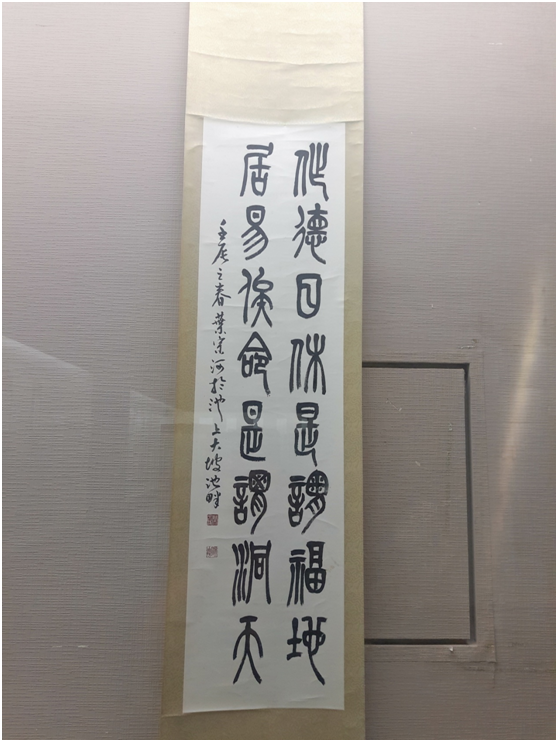 作德日休是谓福地
居易俟命是謂洞天
壬辰之春葉宗河於池上大坡池畔